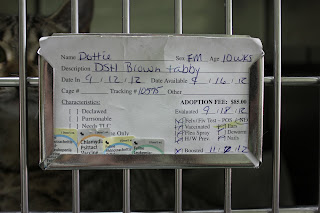 Name Dottie Sex FM Age 10 WKS
Description DSH Brown tabby
Date In 9 12 12 Date Available 9 16 12
Cage # Tracking # 10575 Other
Characteristics: ADOPTION FEE: $85.00
[ ] Declawed Evaluated 9 18 12
[ ] Purrsonable Felv/Fiv Test - POS NEG
[ ] Needs TLC Vaccinated Ears
Only Flea Spray Deworm
H/W Prev Nails
Boostered 11 12